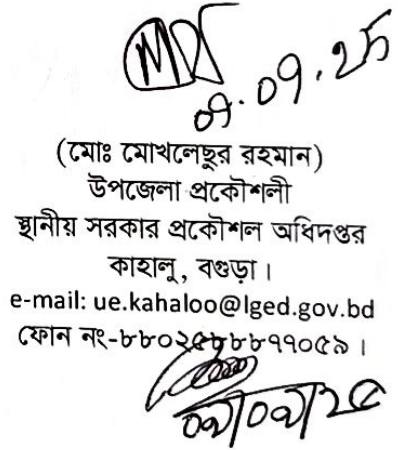 ০৭.০৭.২৫
(মোঃ মোখলেছুর রহমান)
উপজেলা প্রকৌশলী
স্থানীয় সরকার প্রকৌশল অধিদপ্তর
কাহালু, বগুড়া।
e-mail: ue.kahaloo@lged.gov.bd
ফোন নং-৮৮০২৫৮৮৮৭৭০৫৯।